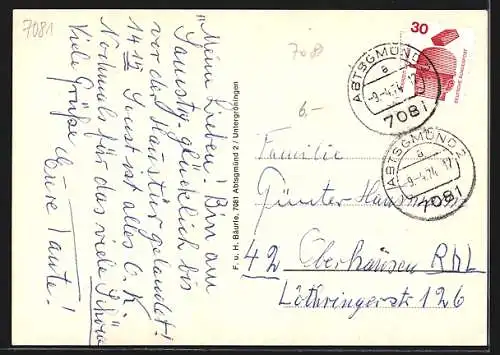 7081
"Meine Lieben! Bin am
Samstg. glücklich bis
vor die Haustür gelandet!
14 15 Sonst ist alles O.K.
Nochmals für das viele Schöne
Viele Grüße Eure Tante!
F. u. H. Bäurle, 7081 Abtsgmünd 2 / Untergröningen
7081
6.-
30
DEUTSCHE BUNDESPOST
ABTSGMÜND 2
a
-9.-4.74.-17
7081
ABTSGMÜND 2
a
-9.-4.74.-17
7081
Familie
Günter
42 Oberhausen Rhl
Löthringerstr 126